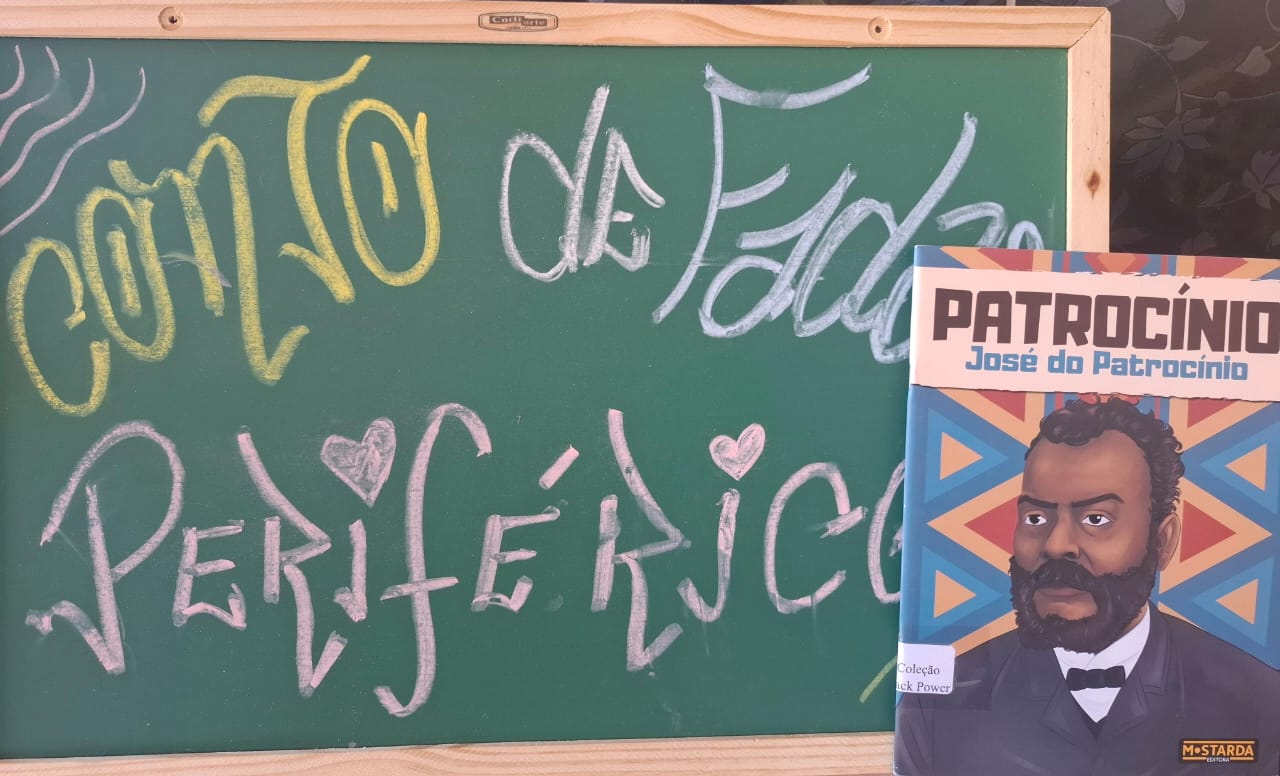 CONTO de Fadas
PERIFÉRICO
PATROCÍNIO
José do Patrocínio
Coleção
ack Power
MOSTARDA
EDITORA